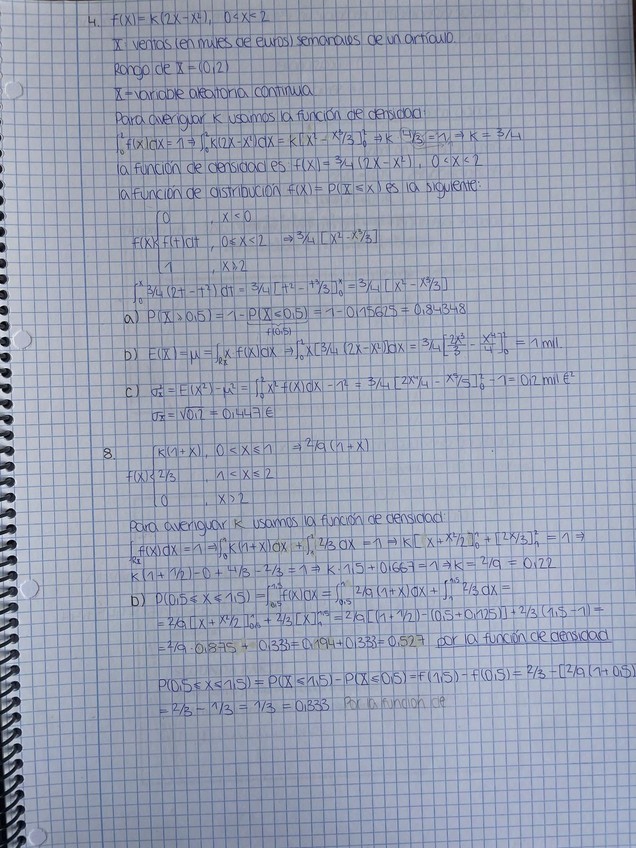 4. f(x)=k(2x-x²), 0<x<2
X ventas (en miles de euros) semanales de un artículo.
Rango de X=(0,2)
X=variable aleatoria continua
Para averiguar k usamos la función de densidad:
∫₀² f(x)dx=1⇒∫₀² k(2x-x²)dx=k[x²-x³/3]₀²⇒k(4/3)=1⇒k=3/4
la función de densidad es f(x)=3/4(2x-x²), 0<x<2
la función de distribución f(x)=P(X≤x) es la siguiente:
0 , x<0
f(x){ f(t)dt , 0≤x<2 ⇒3/4[x²-x³/3]
1 , x≥2
∫₀ˣ 3/4(2t-t²)dt=3/4[t²-t³/3]₀ˣ=3/4[x²-x³/3]
a) P(X>0,5)=1-P(X≤0,5)=1-0,15625=0,84348
f(0,5)
b) E(X)=μ=∫Rx x f(x)dx⇒∫₀² x[3/4(2x-x²)]dx=3/4[2x³/3-x⁴/4]₀²=1 mil.
c) σx²=E(X²)-μ²=∫₀² x² f(x)dx-1²=3/4[2x⁴/4-x⁵/5]₀²-1=0,2 mil €²
σx=√0,2=0,447€
8. k(1+x), 0<x≤1 ⇒2/9(1+x)
f(x){ 2/3 , 1<x≤2
0 , x>2
Para averiguar k usamos la función de densidad:
∫Rx f(x)dx=1⇒∫₀¹ k(1+x)dx+∫₁² 2/3dx=1⇒k[x+x²/2]₀¹+[2x/3]₁²=1⇒
k(1+1/2)-0+4/3-2/3=1⇒k·1,5+0,667=1⇒k=2/9=0,22
b) P(0,5≤x≤1,5)=∫0,5^1,5 f(x)dx=∫0,5^1 2/9(1+x)dx+∫1^1,5 2/3dx=
=2/9[x+x²/2]0,5^1+2/3[x]1^1,5=2/9[(1+1/2)-(0,5+0,125)]+2/3(1,5-1)=
=2/9·0,875+0,333=0,194+0,333=0,527 por la función de densidad
P(0,5≤x≤1,5)=P(X≤1,5)-P(X≤0,5)=f(1,5)-f(0,5)=2/3-[2/9(1+0,5)
=2/3-1/3=1/3=0,333 Por la función de